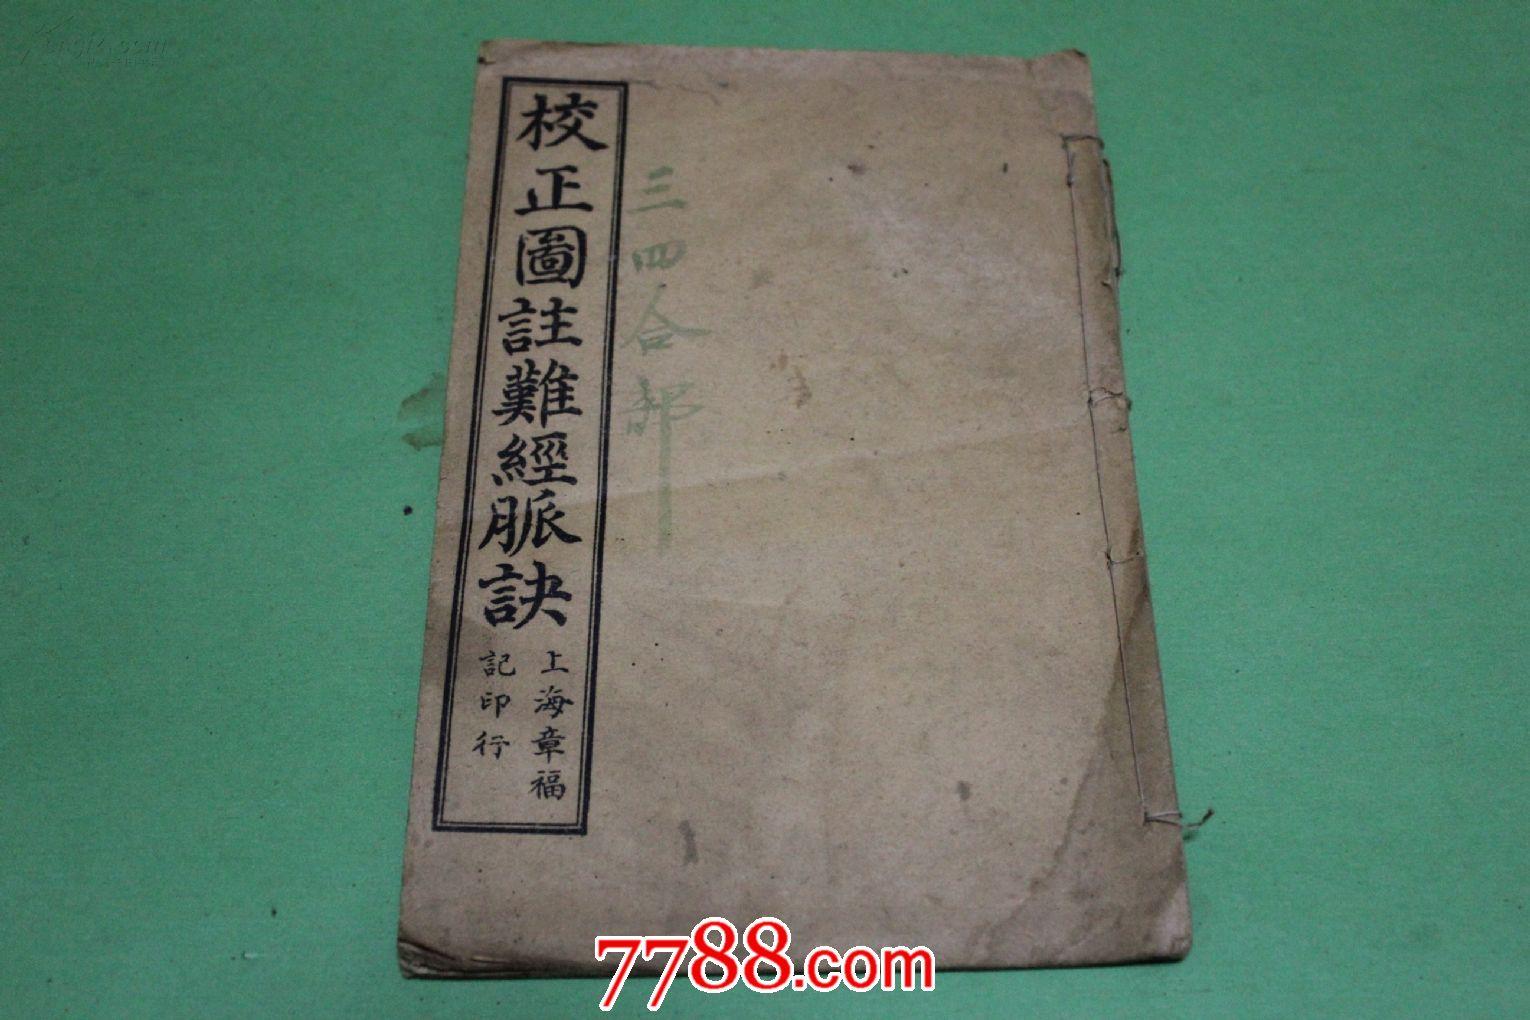 校正圖註難經脈訣
上海章福
記印行
三四合部
7788.com